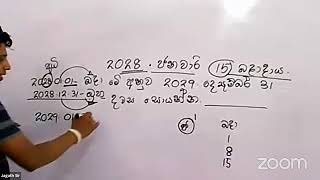 2028 ජනවාරි 15 බදාදාය.
2028 01 01 - බදා මේ අනුව 2029 දෙසැම්බර් 31
2028-12-31 - බ්‍රහ දවස සොයන්න.
2029 01
බදා
1
8
15
zoom
Jagath Sir